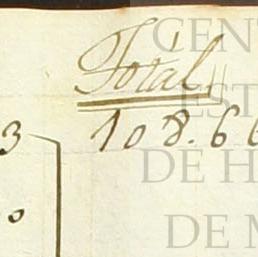 Total
3 108.6
0
CENT
EST
DE H
DE M